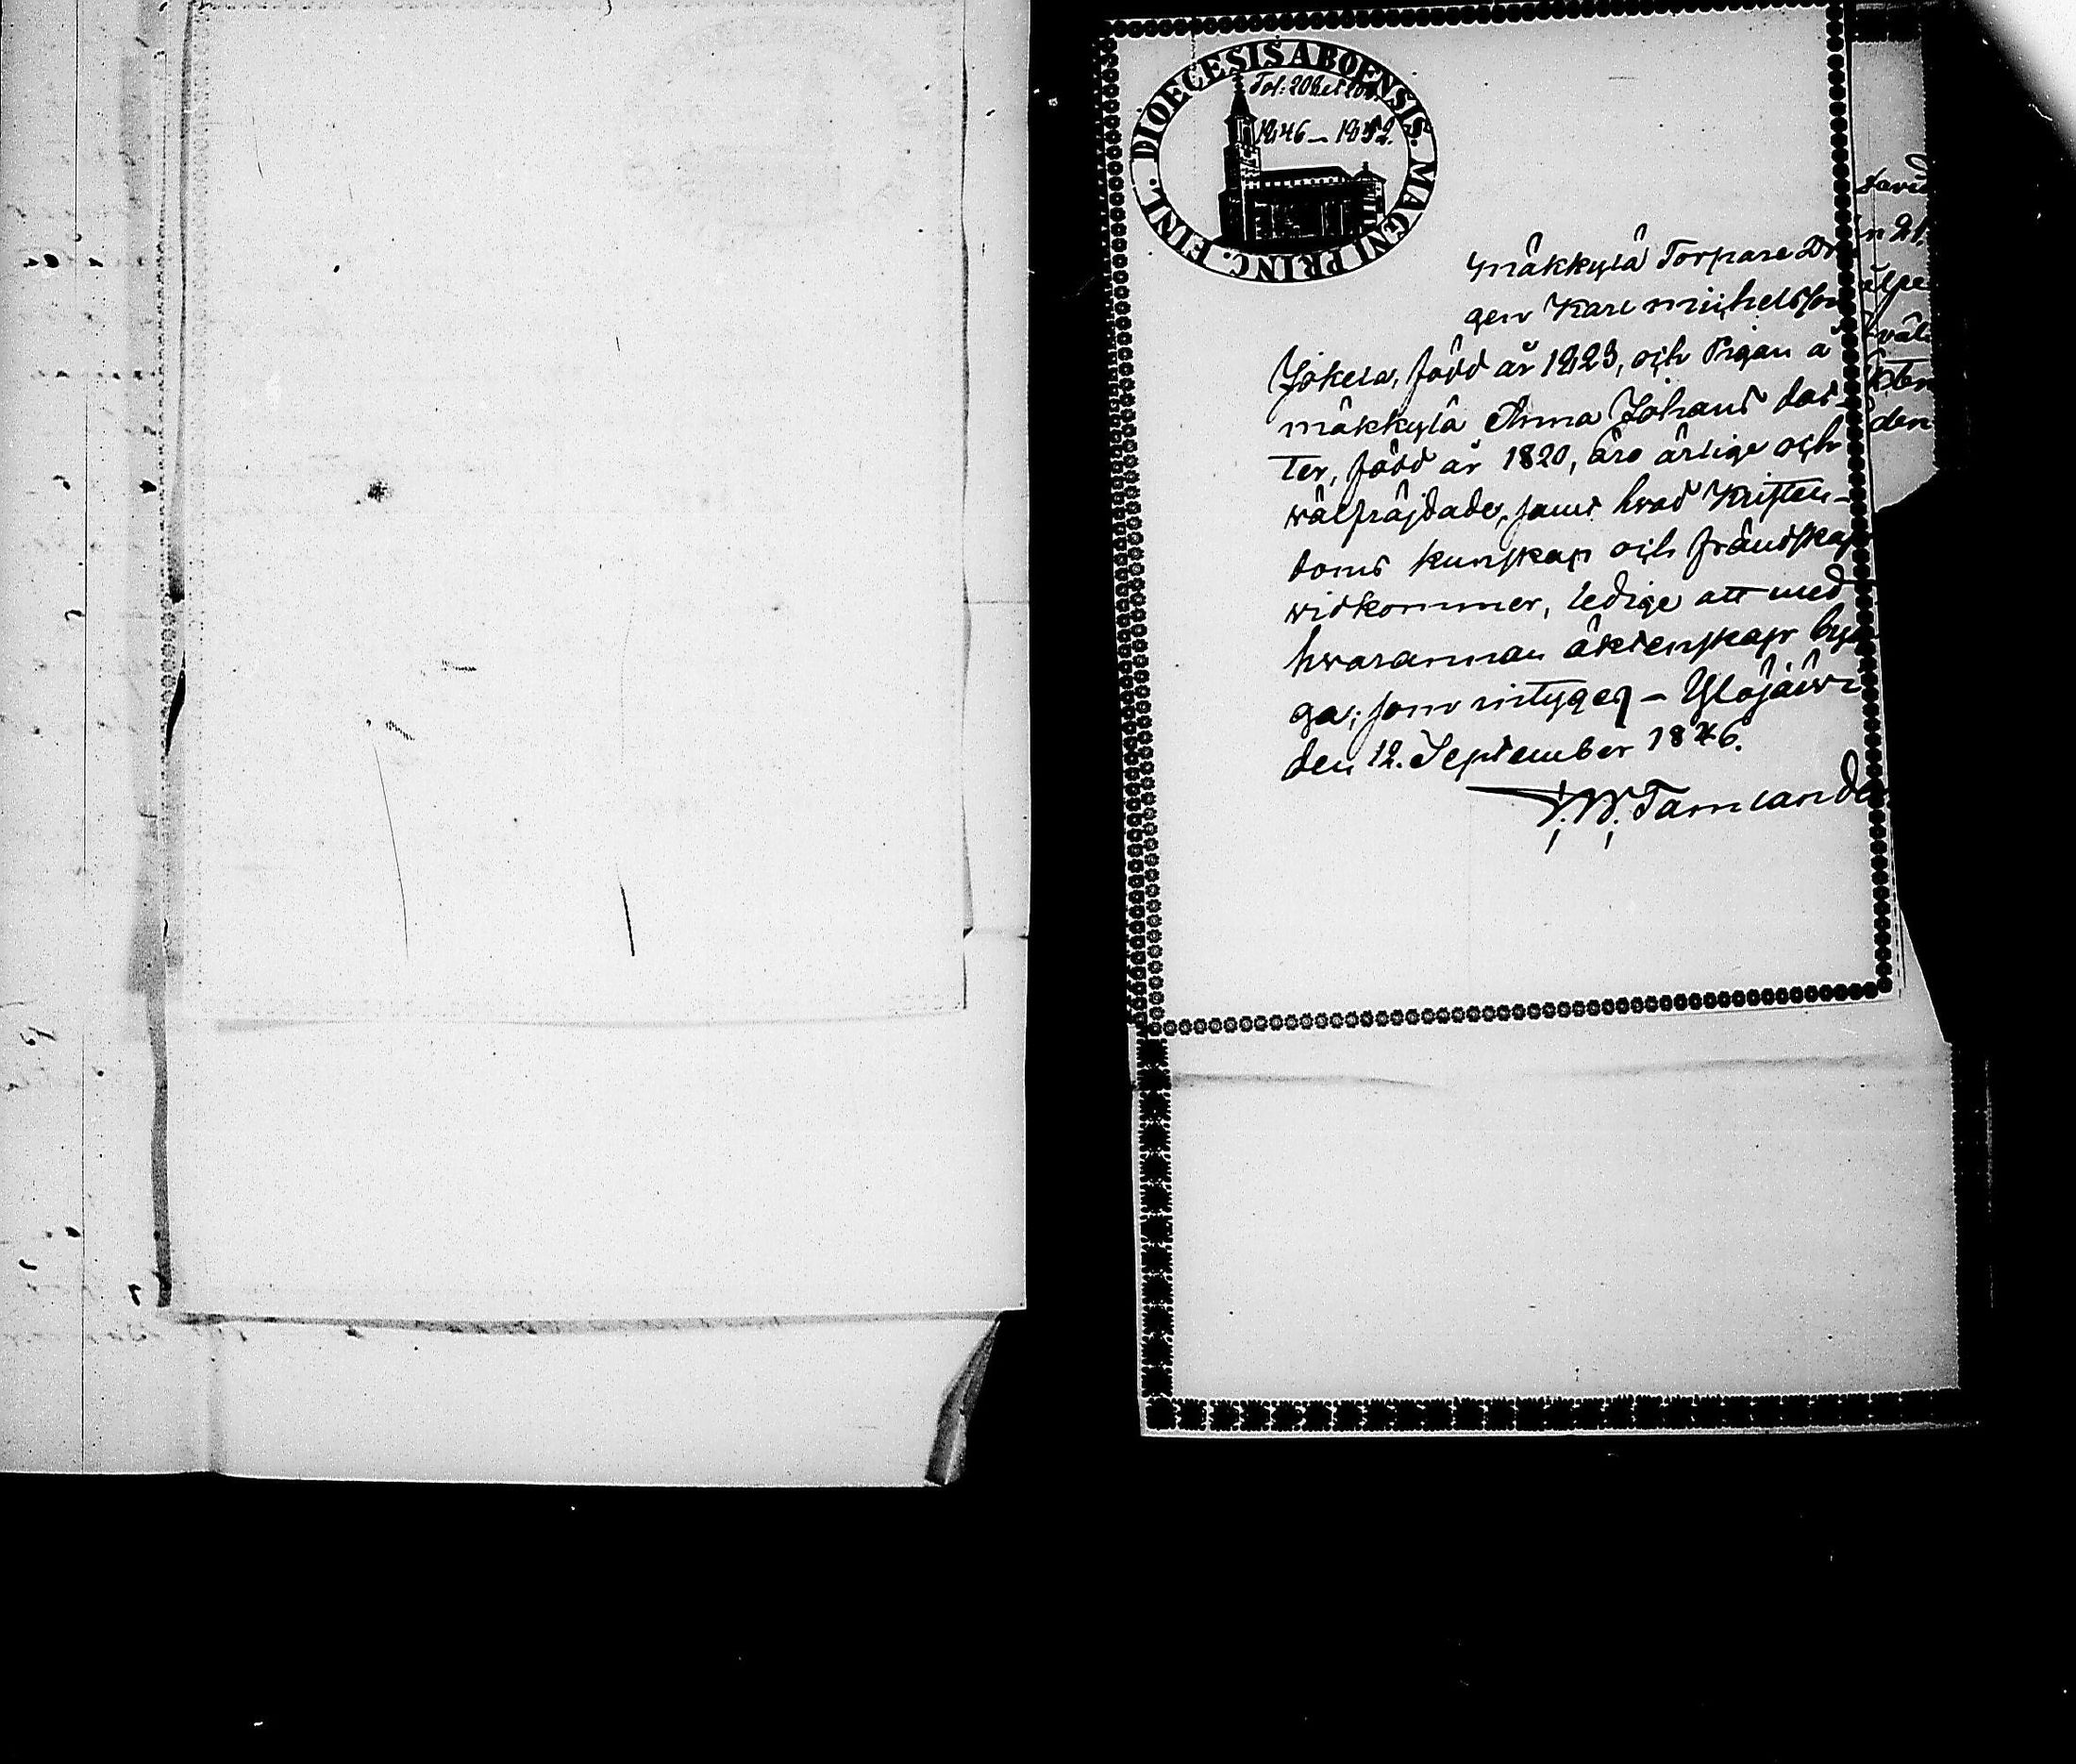 DIOECESIS ABOENSIS. MAGNI PRINC. FINL.
Fol: 208 et 209.
1846 – 1852.
Mäkkylä Torpare Dr
gen Karl Michelsson
Jokela, född år 1823, och Pigan a
Mäkkylä Anna Johans dot-
ter, född år 1820, äro ärlige och
wälfräjdade, samt hwad Kristen-
doms kunskap och frändskap
widkommer, ledige att med
hwarannan äktenskap byg
ga; som intygeq – Ylöjärwi
den 12. September 1846.
F. W. Tamlande
David
n 21.
älfre
wäl
den